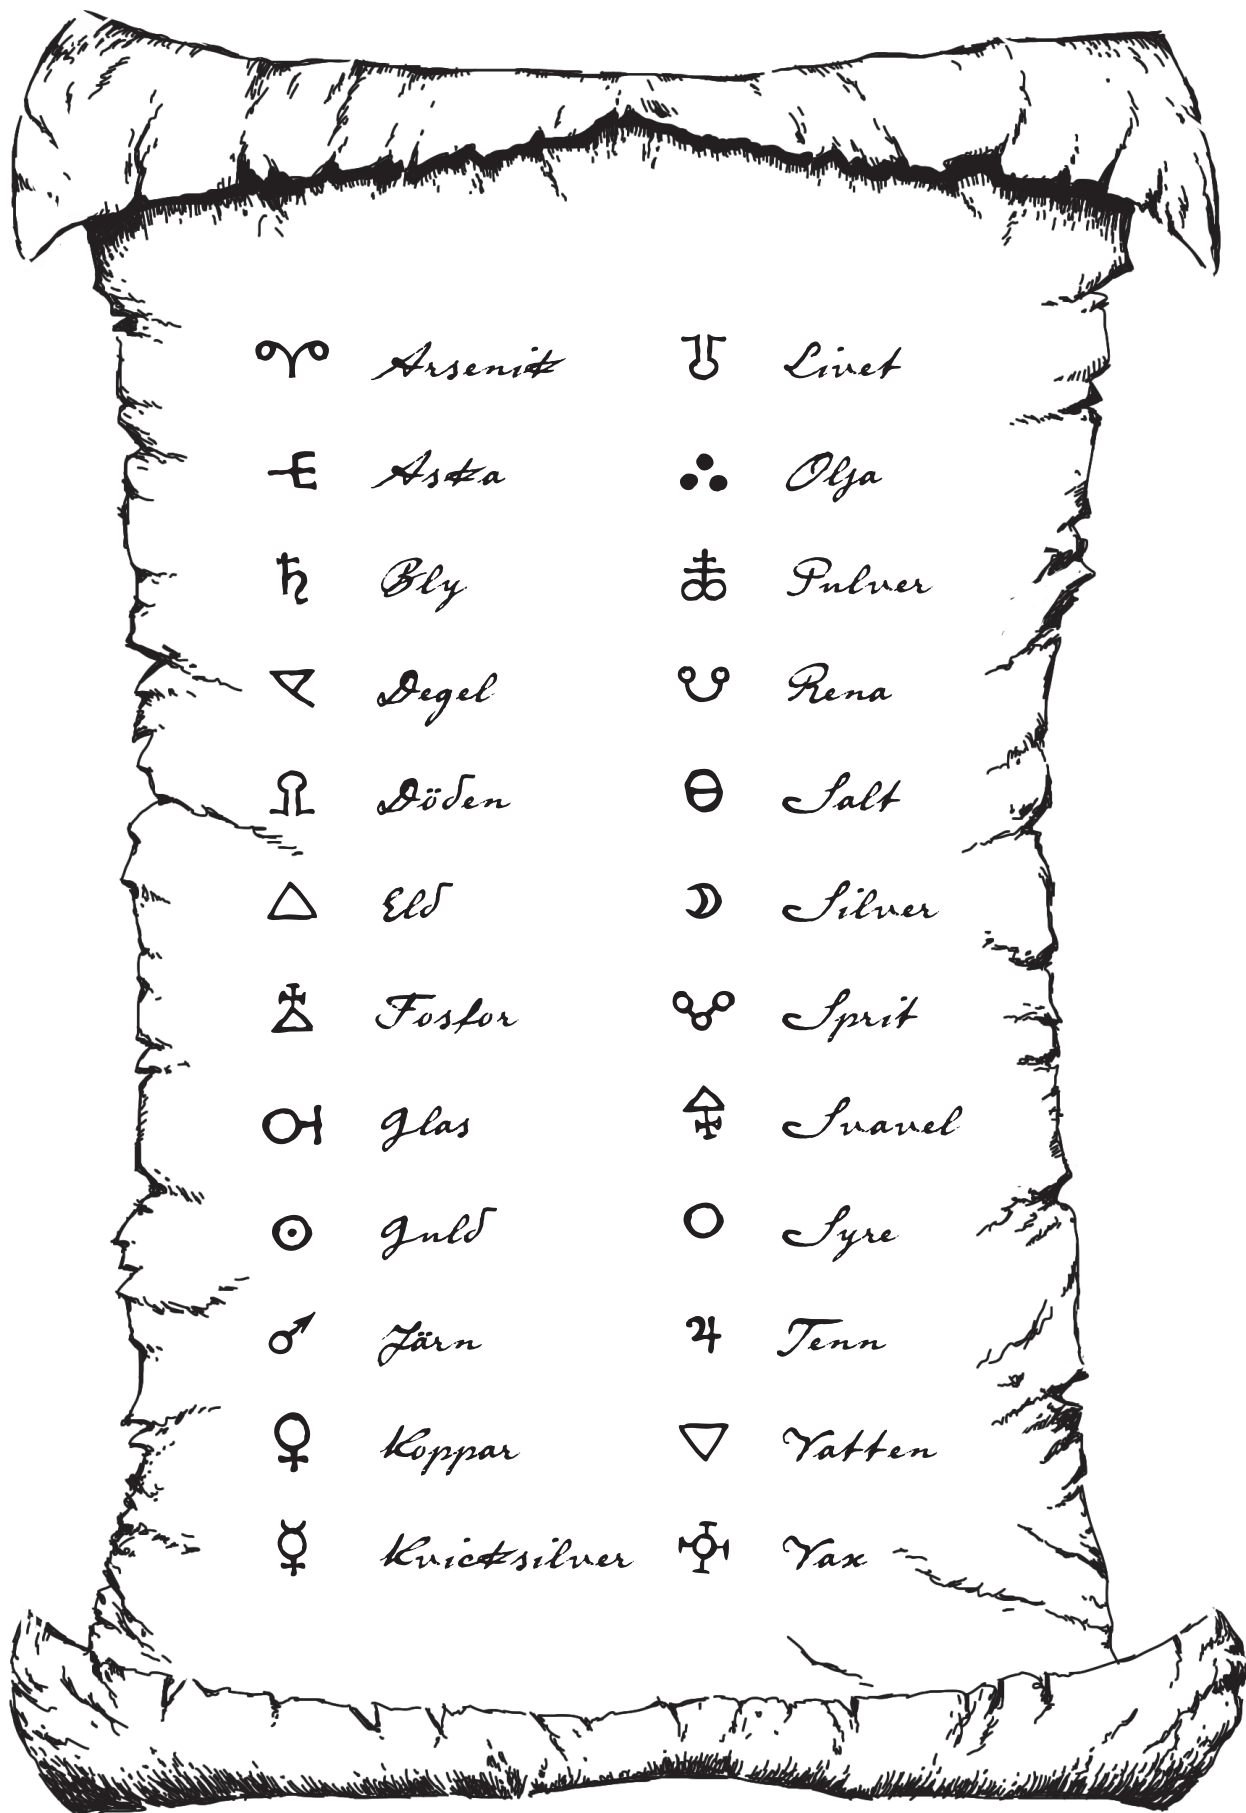 Arsenik
Aska
Bly
Degel
Döden
Eld
Fosfor
Glas
Guld
Järn
Koppar
Kvicksilver
Livet
Olja
Pulver
Rena
Salt
Silver
Sprit
Svavel
Syre
Tenn
Vatten
Vax